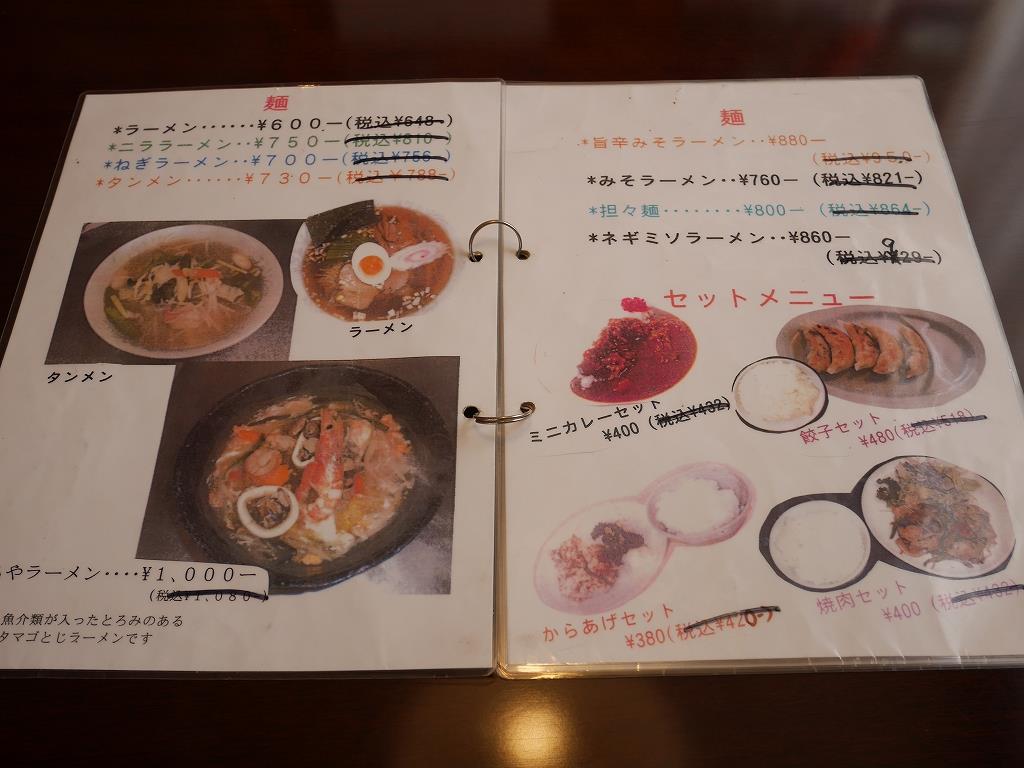 麺
*ラーメン‥‥‥¥600ー(税込¥648-)
*ニララーメン‥¥750ー(税込¥810-)
*ねぎラーメン‥¥700ー(税込¥756-)
*タンメン‥‥‥¥730ー(税込¥788-)
ラーメン
タンメン
やラーメン‥‥¥1,000ー
(税込¥1,080-)
魚介類が入ったとろみのある
タマゴとじラーメンです
麺
*旨辛みそラーメン‥¥880ー
(税込¥950-)
*みそラーメン‥¥760ー (税込¥821-)
*担々麺‥‥‥‥¥800ー (税込¥864-)
*ネギミソラーメン‥¥860ー
(税込¥929-)
セットメニュー
ミニカレーセット
¥400 (税込¥432)
餃子セット
¥480(税込¥518)
からあげセット
¥380(税込¥420-)
焼肉セット
¥400 (税込¥432)